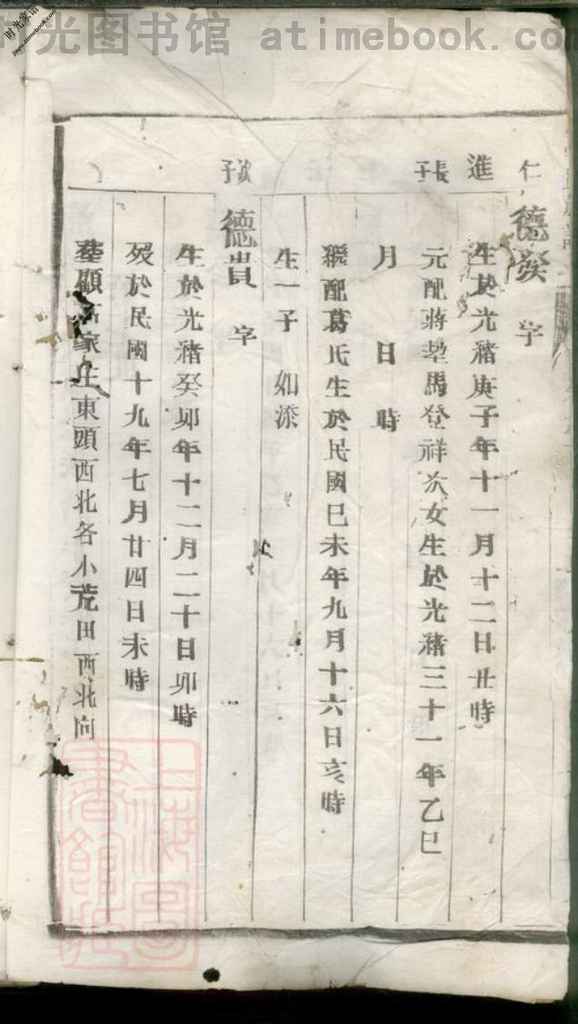 时光图书馆 atimebook.com
仁
進
長子
次子
德 字
生於光緒庚子年十一月十二日丑時
元配蔣墅馬登祥次女生於光緒三十一年乙巳
月 日 時
繼配葛氏生於民國己未年九月十六日亥時
生一子 如深
德貴 字
生於光緒癸卯年十二月二十日卯時
歿於民國十九年七月廿四日未時
葬顧 家庄東頭西北各小荒田西北向
上海圖書館藏